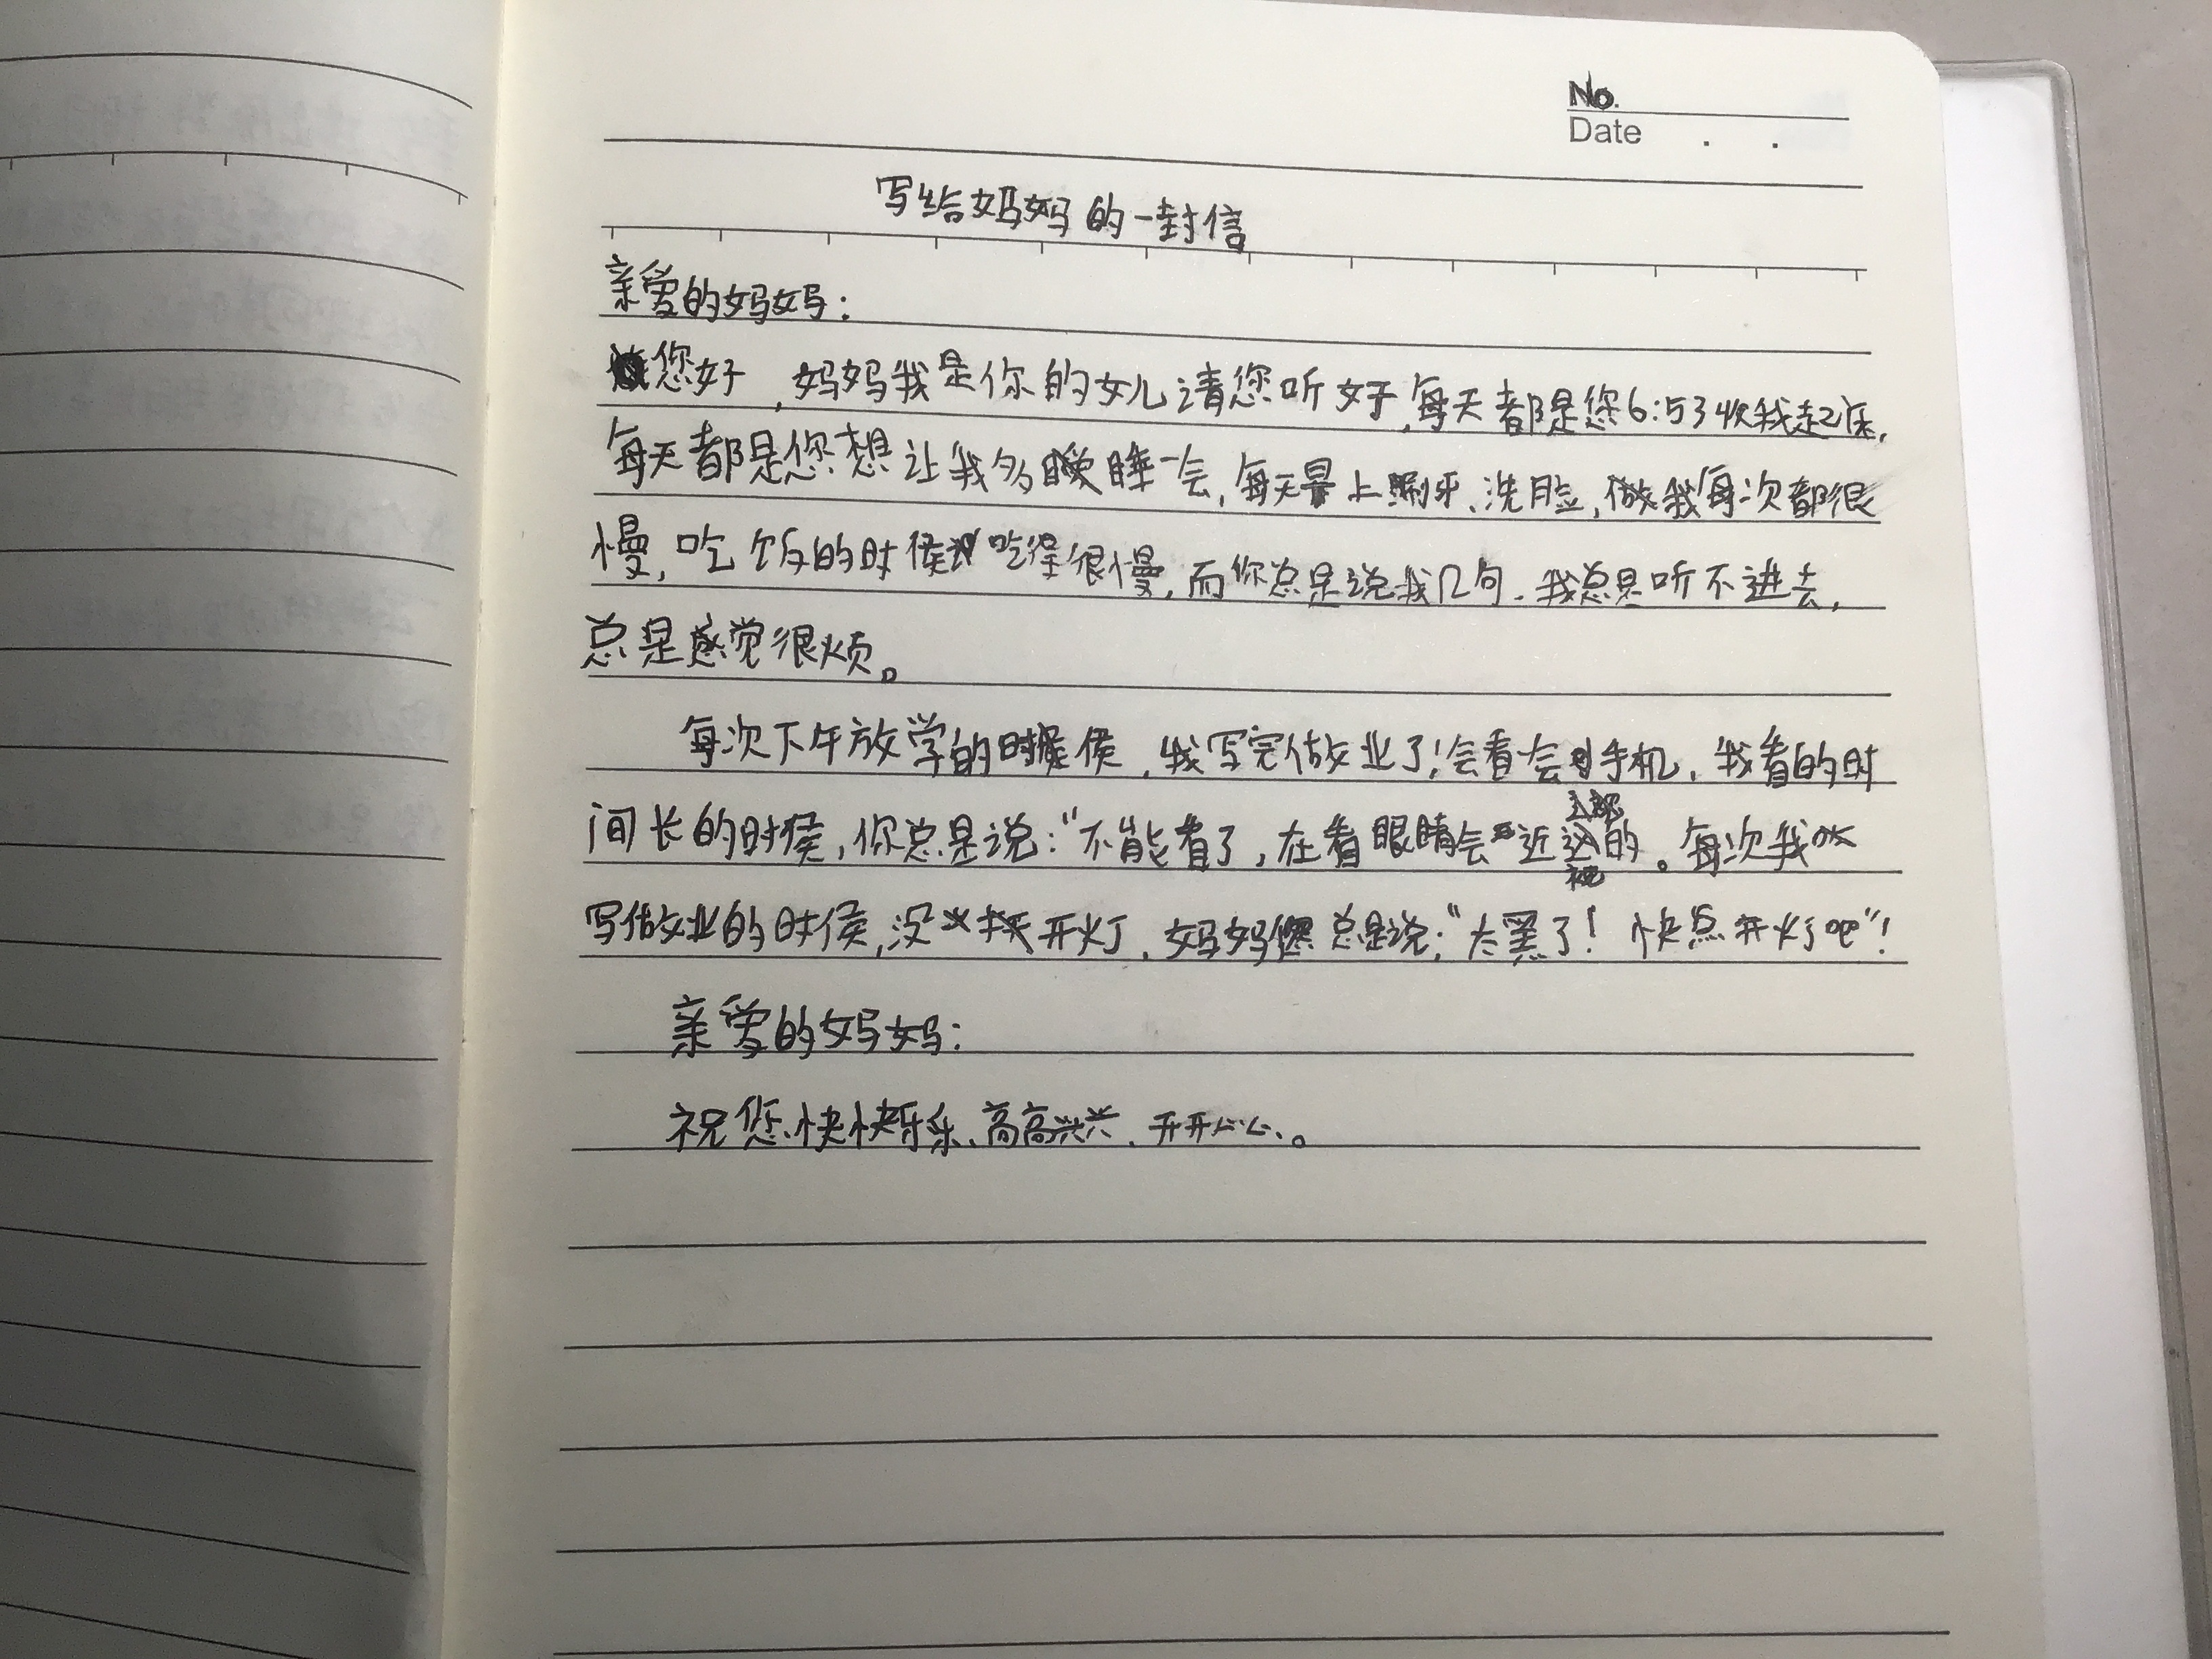 No.
Date . .
写给妈妈的一封信
亲爱的妈妈：
您好，妈妈我是你的女儿请您听好，每天都是您6:53收我起床，
每天都是您想让我多睡一会，每天早上刷牙、洗脸，做我每次都很
慢，吃饭的时侯吃得很慢，而你总是说我几句，我总是听不进去，
总是感觉很烦。
每次下午放学的时侯，我写完做业了！会看会手机，我看的时
间长的时侯，你总是说：“不能看了，在看眼睛会近的。每次我
写做业的时侯，没开灯，妈妈您总是说：“太黑了！快点开灯吧”！
亲爱的妈妈：
祝您快快乐乐、高高兴兴、开开心心。